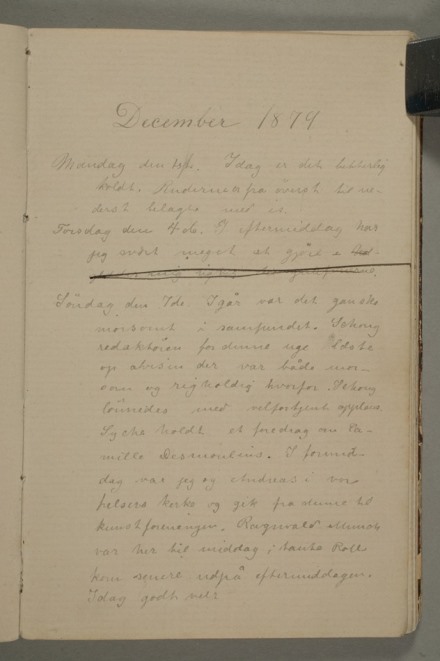 December 1879
Mandag den 1ste. Idag er det bitterlig
koldt. Ruderne er fra øverst til ne-
derst belagte med is.
Torsdag den 4de. I eftermiddag har
jeg svært meget at gjøre
Søndag den 7de. Igår var det ganske
morsomt i samfundet. Schong
redaktøren for denne uge læste
op avisen der var både mor-
som og righoldig hvorfor Schong
lönnedes med velfortjent applaus.
Sycha holdt et foredrag om Ca-
mille Desmoulins. I formid-
dag var jeg og Andreas i vor
frelsers kirke og gik fra denne til
kunstforeningen. Ragnvald
var her til middag; tante Roll
kom senere udpå eftermiddagen.
Idag godt veir